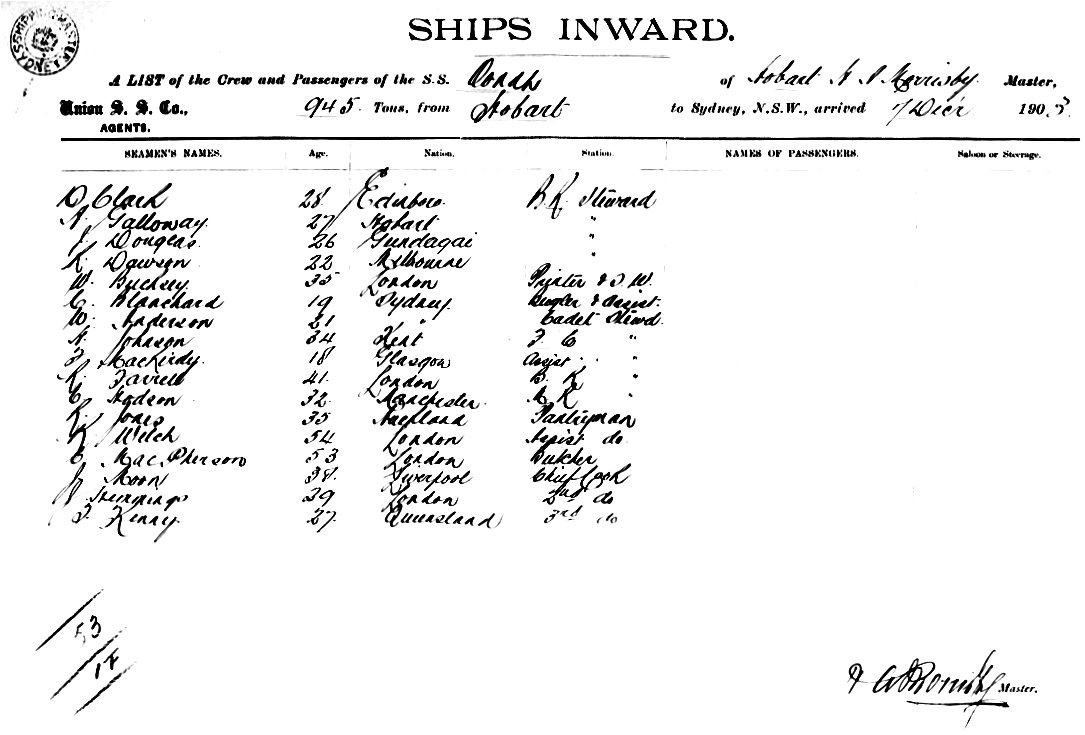 SHIPS INWARD.
A LIST of the Crew and Passengers of the S.S. Oonah of Hobart Morrisby Master,
Union S. S. Co., 945 Tons, from Hobart to Sydney, N.S.W., arrived 7 Decr 1903
AGENTS.
SEAMEN'S NAMES. Age. Nation. Station. NAMES OF PASSENGERS. Saloon or Steerage.
D. Clark 28 Edinboro B.R. Steward
A. Galloway 27 Hobart "
J. Douglas 26 Gundagai "
R. Dawson 22 Melbourne "
W. Bucksey 35 London Printer & S. W.
C. Blanchard 19 Sydney Bugler & Assist.
W. Anderson 21 " Cadet Stewd.
A. Johnson 34 Kent F. C "
MacKirdy 18 Glasgow Assist "
Farrell 41 London B. R "
C. Hudson 32 Manchester "
R. Jones 35 Auckland Pantryman
R. Welch 54 London Assist do
C. MacPherson 53 London Butcher
J. Moon 38 Liverpool Chief Cook
Hemmings 39 London 2nd do
Kenny 27 Queensland 3rd do
53
17
Master.